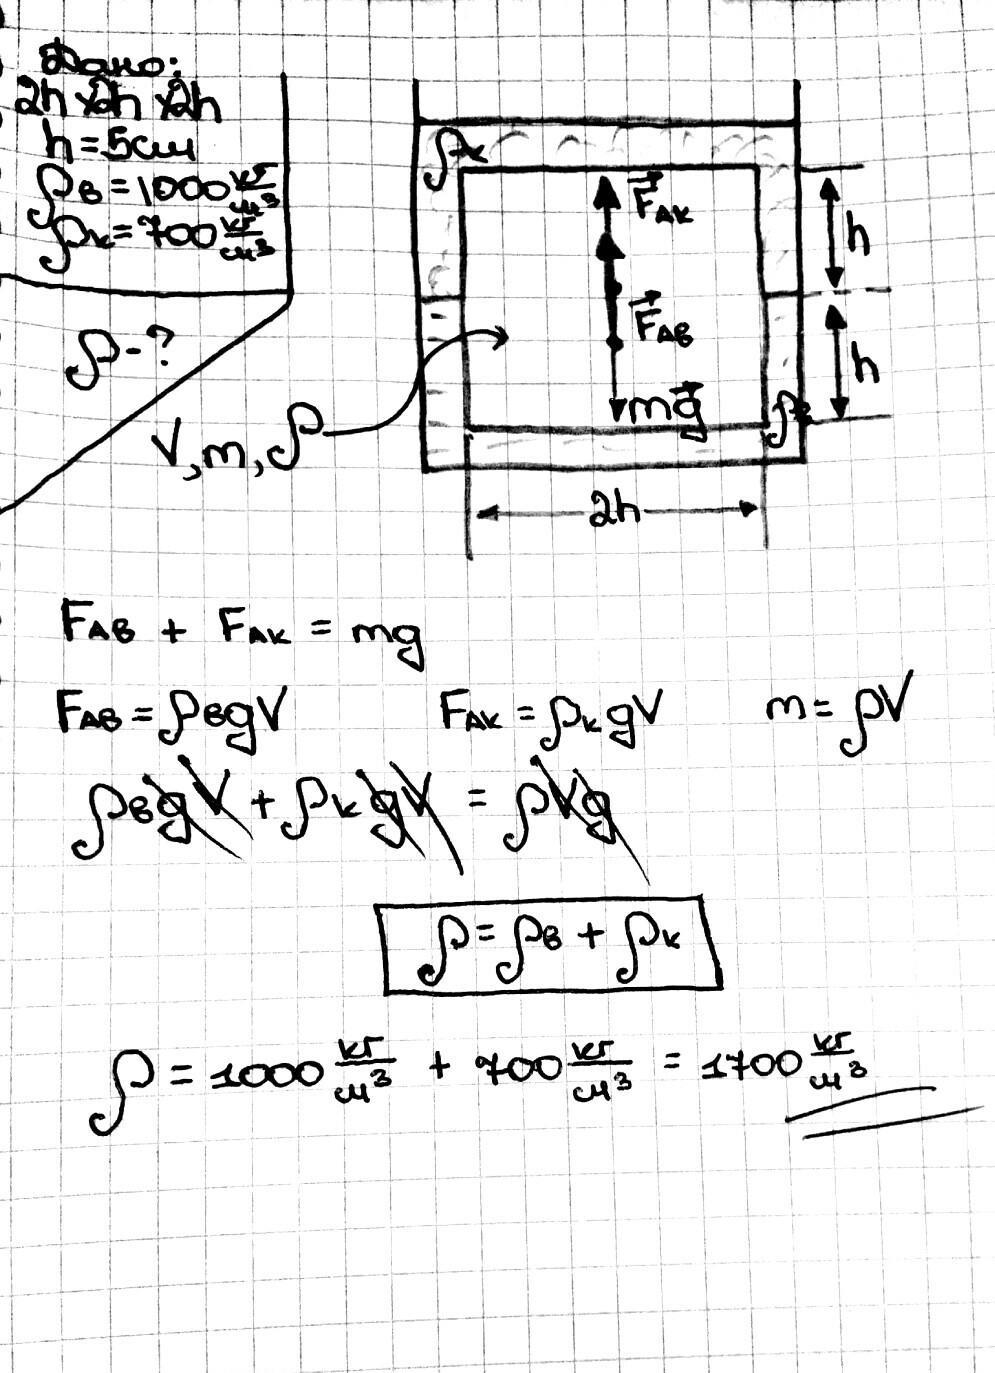 Дано:
2h x2h x2h
h = 5см
ρв = 1000 кг/м³
ρк = 700 кг/м³
ρ - ?
ρк
F⃗АК
h
F⃗АВ
h
mg⃗
ρв
V, m, ρ
2h
FАВ + FАК = mg
FАВ = ρвgV FАК = ρкgV m = ρV
ρвgV + ρкgV = ρVg
ρ = ρв + ρк
ρ = 1000 кг/м³ + 700 кг/м³ = 1700 кг/м³